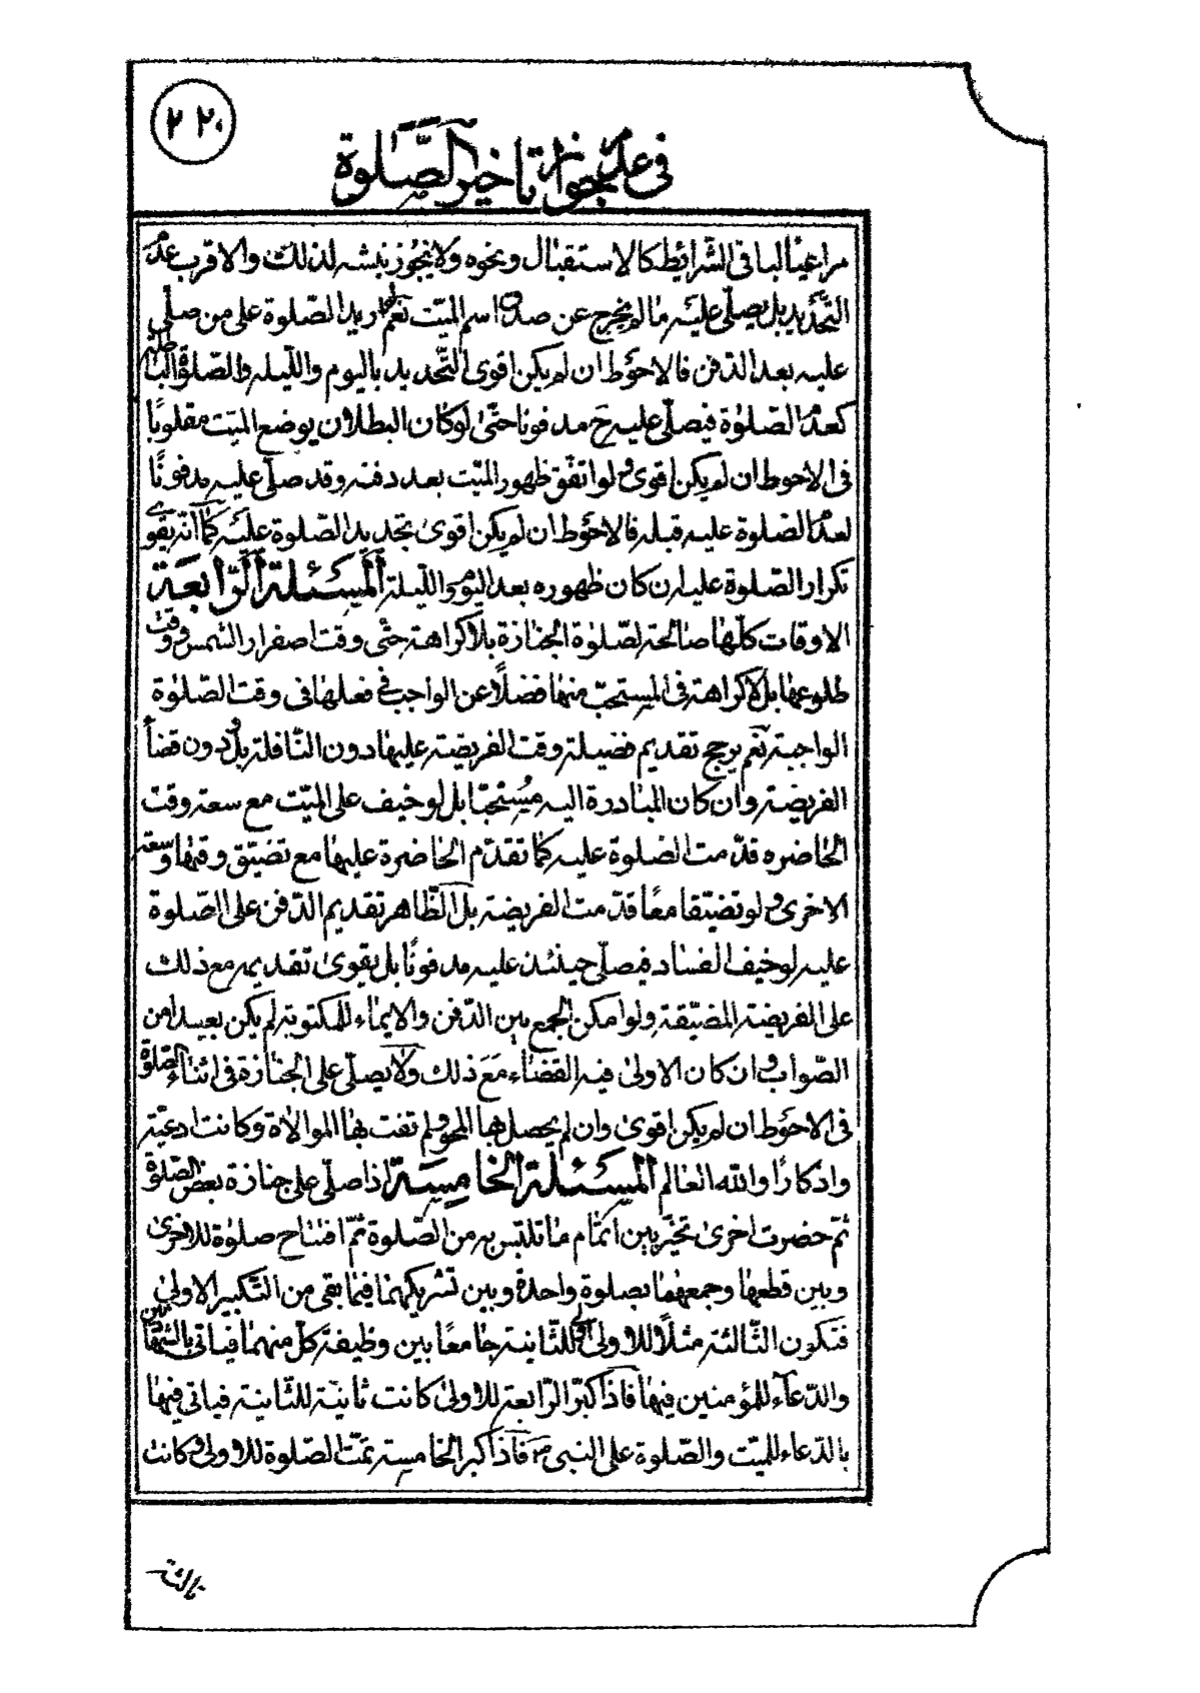 ٢٢٠
فی عدم جواز تاخیر الصّلوة
مراعیًا لباقی الشّرائط کالاستقبال ونحوه ولا یجوز نبشه لذلک والاقرب عدم
التّحدید بل یصلّی علیه ما لم یخرج عن صدق اسم المیّت نعم لو ارید الصّلوة علی من صلّی
علیه بعد الدّفن فالاحوط ان لم یکن اقوی التّحدید بالیوم واللّیله والصّلوة الباطلة
کعدم الصّلوة فیصلّی علیه ح مدفونا حتّی لو کان البطلان بوضع المیّت مقلوبًا
فی الاحوط ان لم یکن اقوی ولو اتّفق ظهور المیّت بعد دفنه وقد صلّی علیه مدفونًا
لعدم الصّلوة علیه قبله فالاحوط ان لم یکن اقوی تجدید الصّلوة علیه کما انّه یقوی
تکرار الصّلوة علیه ان کان ظهوره بعد الیوم واللّیلة المسئلة الرّابعة
الاوقات کلّها صالحة لصلوة الجنازة بلا کراهة حتّی وقت اصفرار الشمس و وقت
طلوعها بل لا کراهة فی المستحبّ منها فضلاً عن الواجب فی فعلها فی وقت الصّلوة
الواجبة نعم یرجح تقدیم فضیلة وقت الفریضة علیها دون النّافلة بل ودون قضاء
الفریضة وان کان المبادرة الیه مستحبّا بل لو خیف علی المیّت مع سعة وقت
الحاضره قدّمت الصّلوة علیه کما تقدّم الحاضرة علیها مع تضیّق وقتها وسعة
الاخری ولو تضیّقا معًا قدّمت الفریضة بل الظّاهر تقدیم الدّفن علی الصّلوة
علیه لو خیف الفساد فیصلّی حینئذ علیه مدفونًا بل یقوی تقدیمه مع ذلک
علی الفریضة المضیّقة ولو امکن الجمع بین الدّفن والایماء للمکتوبة لم یکن بعیدا من
الصّواب وان کان الاولی فیه القضاء مع ذلک ولا یصلّی علی الجنازة فی اثناء الصّلوة
فی الاحوط ان لم یکن اقوی وان لم یحصل بها المحو ولم تفت بها الموالاة وکانت ادعیّة
واذکارًا والله العالم المسئلة الخامسة اذا صلّی علی جنازة بعض الصّلوة
ثمّ حضرت اخری تخیّر بین اتمام ما تلبّس به من الصّلوة ثمّ افتتاح صلوة للاخری
وبین قطعها وجمعهما بصلوة واحدة وبین تشریکهما فیما بقی من التّکبیر الاولی
فتکون الثّالثة مثلًا للاولی اولی للثّانیة جامعًا بین وظیفة کلّ منهما فیاتی بالشّهادتین
والدّعاء للمؤمنین فیها فاذا کبّر الرّابعة للاولی کانت ثانیة للثّانیة فیاتی فیها
بالدّعاء للمیّت والصّلوة علی النبی ص فاذا کبر الخامسة تمّت الصّلوة للاولی وکانت
ثالثة